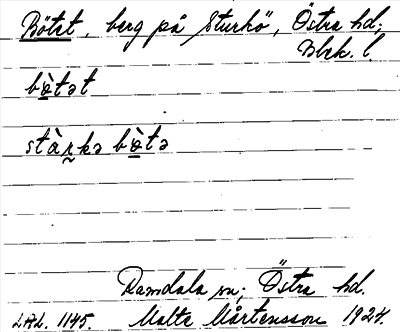 Bötet, berg på Sturkö, Östra hd;
Blek. l.
bö̀tət
stàrkə bö̀tə
Ramdala sn; Östra hd.
LAL. 1145. Malte Mårtensson 1924.